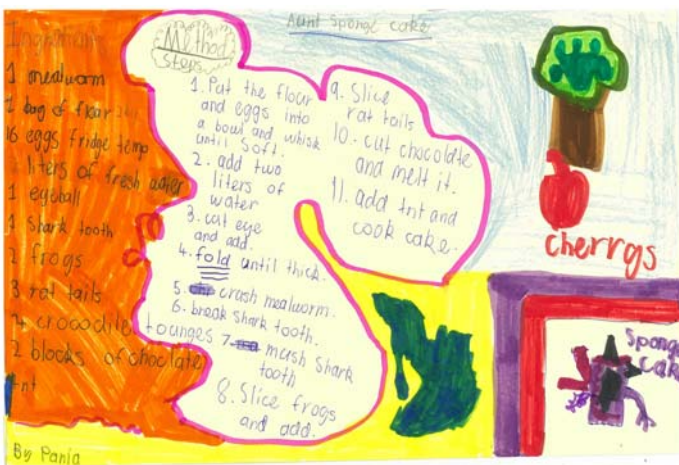 Aunt Sponge cake
1 mealworm
1 bag of floar
16 eggs fridge temp
liters of fresh water
1 eyeball
1 shark tooth
2 frogs
3 rat tails
4 crocodile tounges
2 blocks of choclate
tnt
By Pania
Method
steps
1. Put the flour
and eggs into
a bowl and whisk
until soft.
2. add two
liters of
water
3. cut eye
and add.
4. fold until thick.
5. crash mealworm.
6. break shark tooth.
7. mush shark
tooth
8. Slice frogs
and add.
9. Slice
rat tails
10. cut chocolate
and melt it.
11. add tnt and
cook cake.
cherrys
Sponge
cake